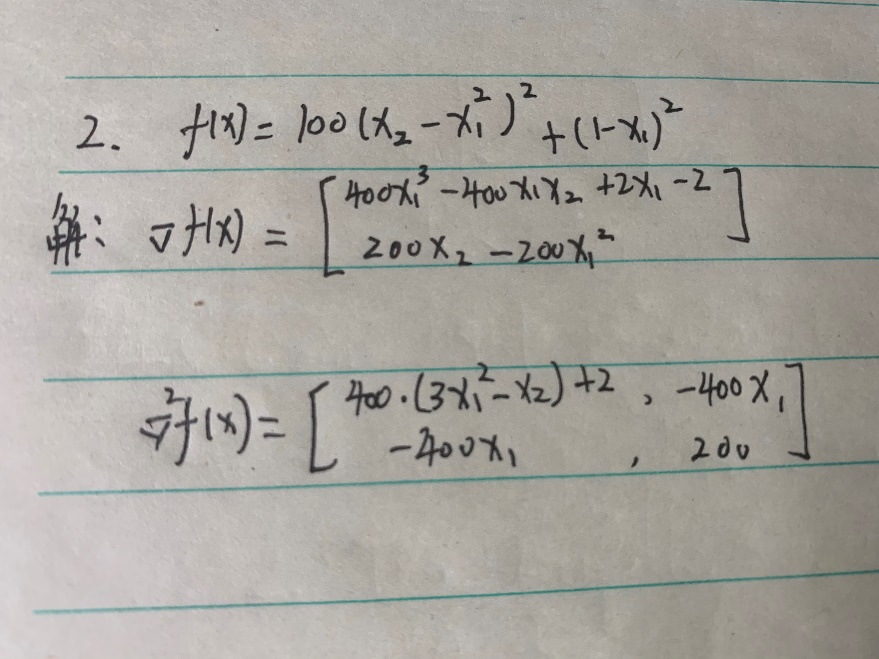 2. f(x) = 100(x₂ - x₁²)² + (1-x₁)²
解: ∇f(x) = [400x₁³ - 400x₁x₂ + 2x₁ - 2
200x₂ - 200x₁²]
∇²f(x) = [400·(3x₁² - x₂) + 2 , -400x₁
-400x₁ , 200]